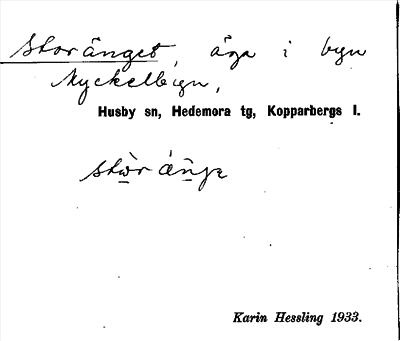 Storänget, äga i byn
Nyckelbyn,
Husby sn, Hedemora tg, Kopparbergs l.
Karin Hessling 1933.